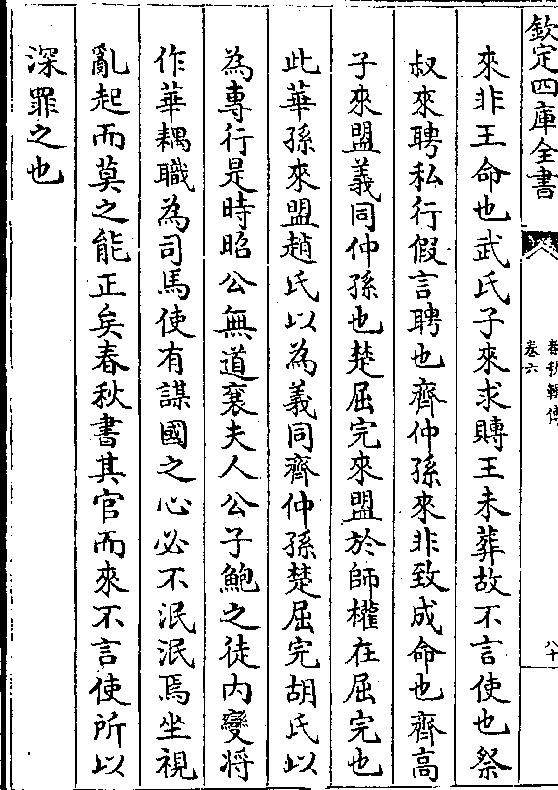 欽定四庫全書
春秋輯傳
卷六
八十
來非王命也武氏子來求賻王未葬故不言使也祭
叔來聘私行假言聘也齊仲孫來非致成命也齊高
子來盟義同仲孫也楚屈完來盟於師權在屈完也
此華孫來盟趙氏以為義同齊仲孫楚屈完胡氏以
為專行是時昭公無道襄夫人公子鮑之徒內變将
作華耦職為司馬使有謀國之心必不泯泯焉坐視
亂起而莫之能正矣春秋書其官而來不言使所以
深罪之也